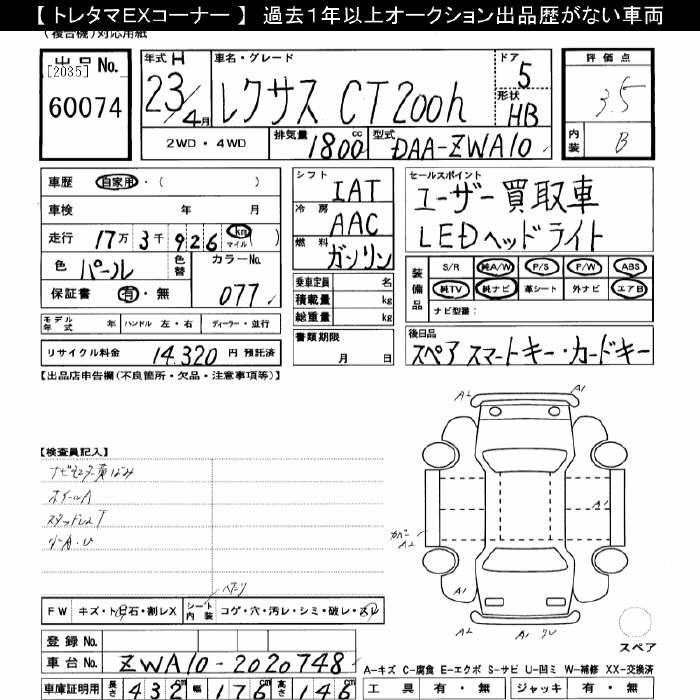 【 トレタマEXコーナー 】 過去1年以上オークション出品歴がない車両
(複合機)対応用紙
出品 No.
[2035]
60074
年式 H
23/4月
車名・グレード
レクサス CT200h
ドア
5
形状
HB
2WD・4WD
排気量 1800 cc
型式 DAA-ZWA10
評価点
3.5
内装 B
車歴 自家用・( )
車検 年 月
走行 17万 3千 926 km マイル ( )
色 パール
色替
カラーNo.
077
保証書 有・無
モデル年式 年 ハンドル 左・右 ディーラー・並行
リサイクル料金 14,320 円 預託済
シフト
IAT
冷房
AAC
燃料
ガソリン
乗車定員 名
積載量 kg
総重量 kg
書類期限
月 日
セールスポイント
ユーザー買取車
LEDヘッドライト
装備品
S/R 純A/W P/S P/W ABS
純TV 純ナビ 革シート 外ナビ エアB
ナビ型番:
後日品
スペアスマートキー・カードキー
【出品店申告欄(不良箇所・欠品・注意事項等)】
【検査員記入】
ホイールA
A2
A1
A1
カバー
A2
A1
A2
A1
スペア
FW キズ・ト石・割レX
シート内装 コゲ・穴・汚レ・シミ・破レ・スレ
登録 No.
車台 No. ZWA10-2020748
A-キズ C-腐食 E-エクボ S-サビ U-凹ミ W-補修 XX-交換済
車庫証明用 長さ 432cm 幅 176cm 高さ 146cm
工具 有・無 ジャッキ 有・無